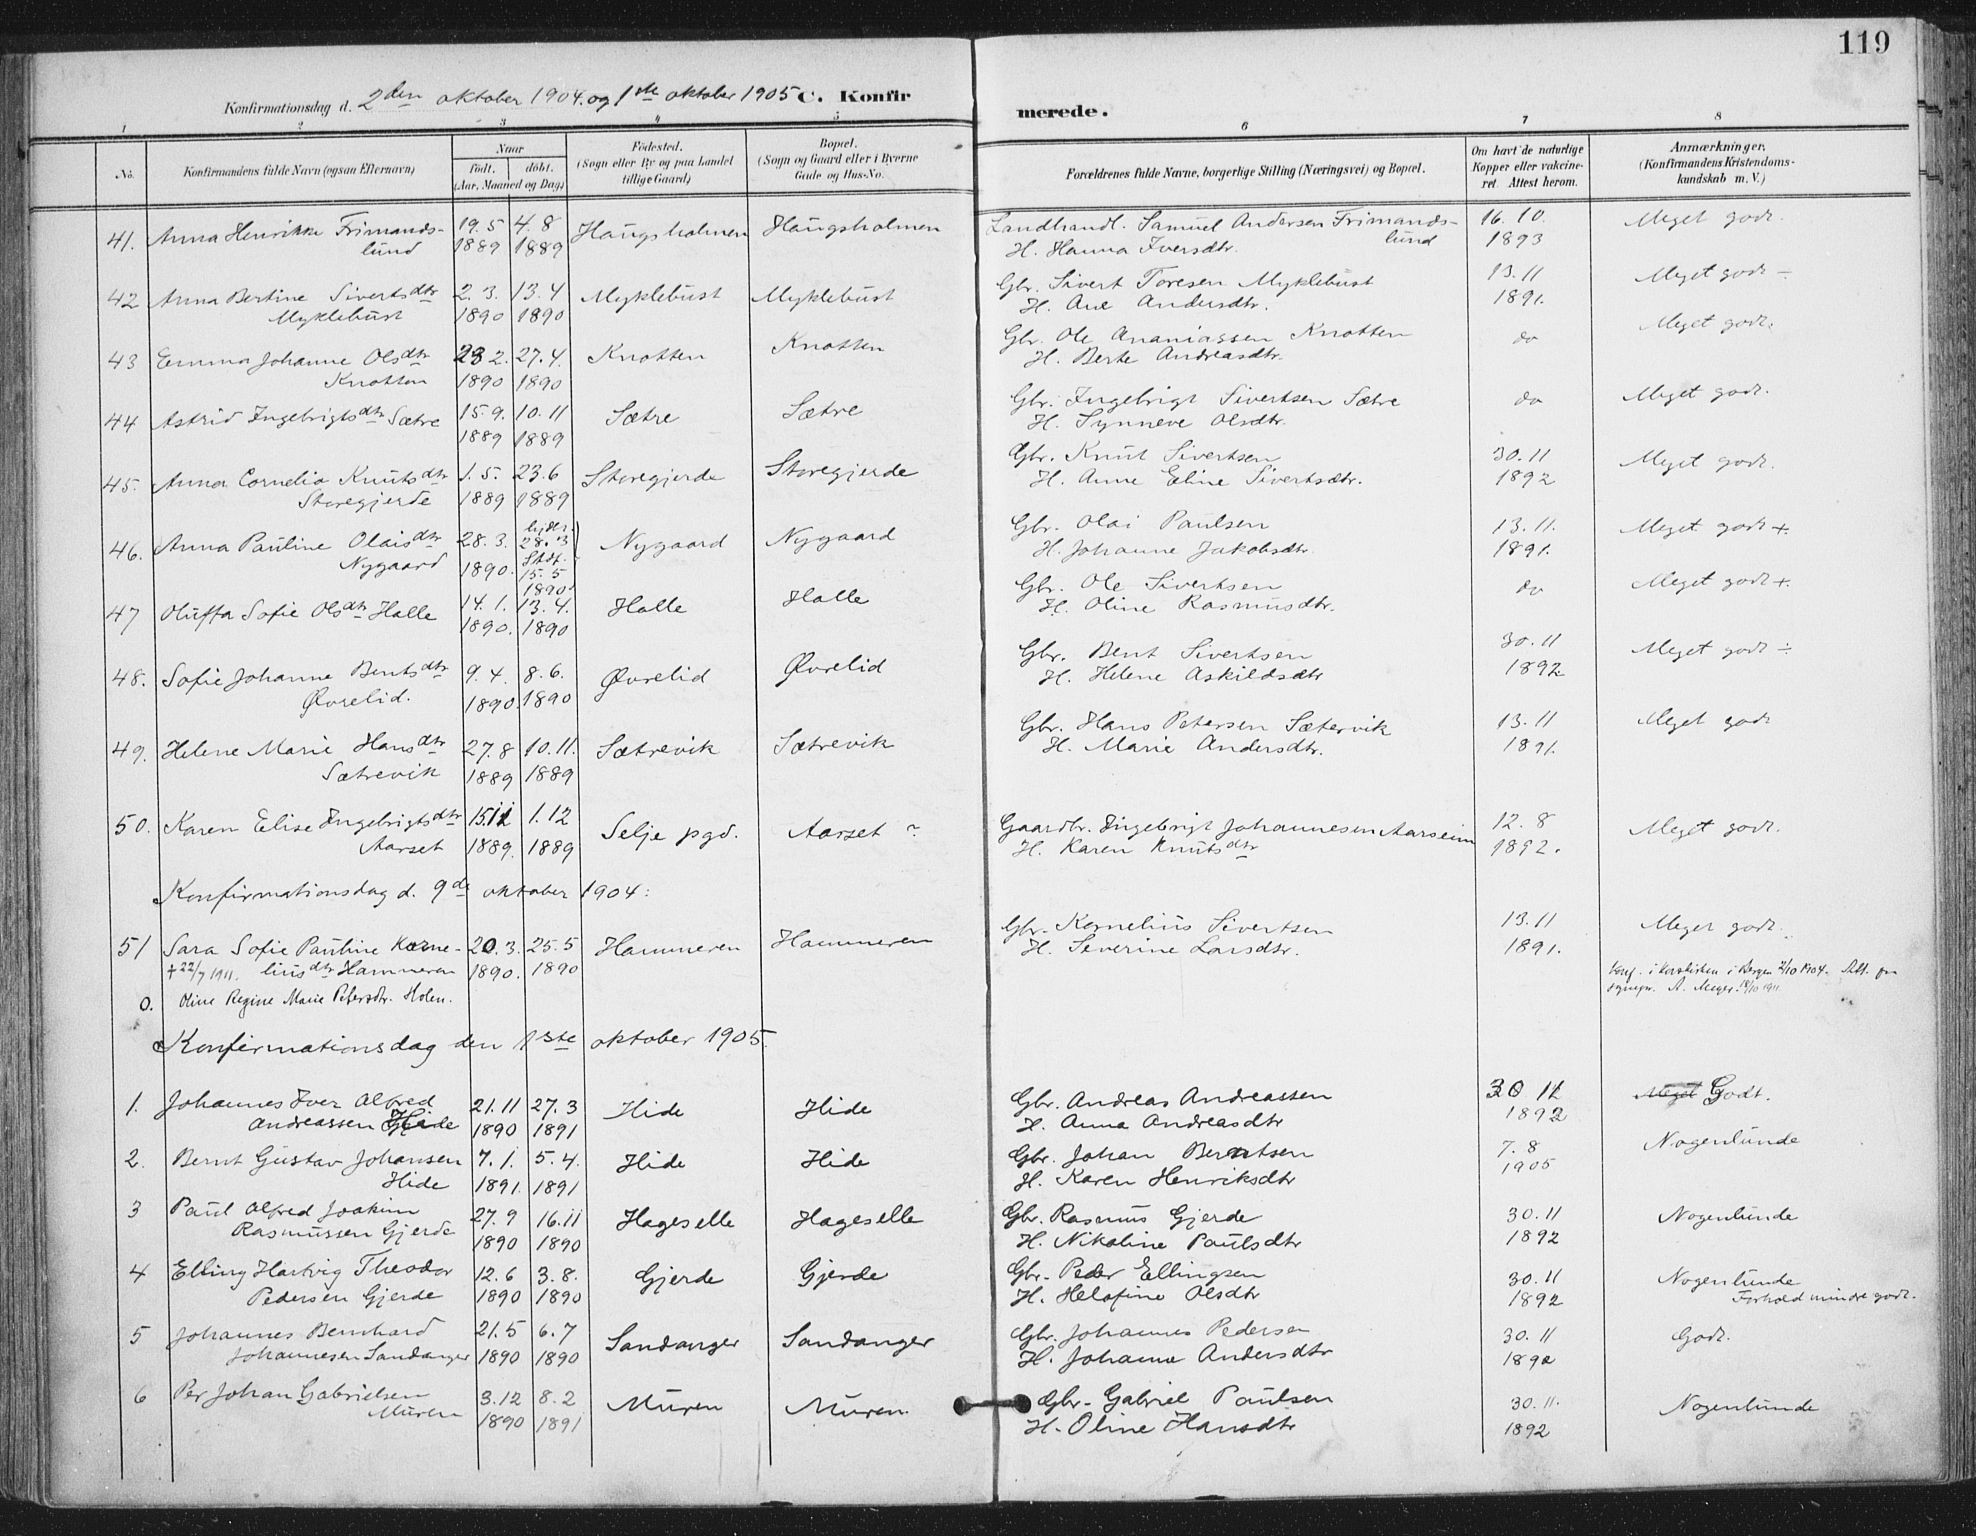 119
Konfirmationsdag d. 2den oktober 1904. og 1ste oktober 1905 C. Konfirmerede.
1 2 3 4 5 6 7 8
No.
Konfirmandens fulde Navn (ogsaa Efternavn)
Naar
födt. döbt.
(Aar, Maaned og Dag)
Födested.
(Sogn eller By og paa Landet
tillige Gaard)
Bopæl.
(Sogn og Gaard eller i Byerne
Gade og Hus-No.
Forældrenes fulde Navne, borgerlige Stilling (Næringsvei) og Bopæl.
Om havt de naturlige
Kopper eller vakcine-
ret. Attest herom.
Anmærkninger.
(Konfirmandens Kristendoms-
kundskab m. V.)
41. Anna Henrikke Frimands- 19. 5 4. 8 Haugsholmen Haugsholmen Landhandl. Samuel Andersen Frimands- 16. 10. Meget godt.
lund 1889 1889 H. Hanna Iversdtr. lund 1893
42 Anna Bertine Sivertsdtr 2. 3. 13. 4 Myklebust Myklebust Gbr. Sivert Toresen Myklebust 13. 11 Meget godt ÷
Myklebust 1890 1890 H. Ane Andersdtr. 1891.
43 Emma Johanne Olsdtr 23 2. 27. 4. Knotten Knotten Gbr. Ole Ananiassen Knotten do Meget godt.
Knotten 1890 1890 H. Berte Andreasdtr.
44 Astrid Ingebrigtsdtr Sætre 15. 9. 10. 11 Sætre Sætre Gbr. Ingebrigt Sivertsen Sætre do Meget godt.
1889 1889 H. Synneve Olsdtr.
45. Anna Cornelia Knutsdtr 1. 5. 23. 6 Storegjerde Storegjerde Gbr. Knut Sivertsen 30. 11 Meget godt.
Storegjerde 1889 1889 H. Anne Eline Sivertsdtr. 1892
46. Anna Pauline Olaisdtr 28. 3. 28. 3 Nygaard Nygaard Gbr. Olai Paulsen 13. 11. Meget godt +.
Nygaard 1890. Stdf. 15. 5 1890 H. Johanne Jakobsdtr. 1891.
47 Oluffa Sofie Olsdtr Halle 14. 1. 13. 4. Halle Halle Gbr. Ole Sivertsen do Meget godt +.
1890. 1890 H. Oline Rasmusdtr.
48. Sofie Johanne Bentsdtr 9. 4. 8. 6. Øvrelid Øvrelid Gbr. Bent Sivertsen 30. 11 Meget godt ÷
Øvrelid. 1890. 1890 H. Helene Askildsdtr 1892
49. Helene Marie Hansdtr 27. 8 10. 11. Sætrevik Sætrevik Gbr. Hans Petersen Sætervik 13. 11 Meget godt
Sætrevik 1889 1889 H. Marie Andersdtr. 1891.
50. Karen Elise Ingebrigtsdtr 15 11 1. 12 Selje pgd. Aarset ? Gaardbr. Ingebrigt Johannesen Aarseim 12. 8 Meget godt.
Aarset 1889. 1889 H. Karen Knutsdtr 1892.
Konfirmationsdag d. 9de oktober 1904:
51 Sara Sofie Pauline Korne- 20. 3. 25. 5 Hammeren Hammeren Gbr. Kornelius Sivertsen 13. 11 Meget godt.
† 22/7 1911. liusdtr Hammeren 1890. 1890 H. Severine Larsdtr. 1891.
0. Oline Regine Marie Petersdtr. Holen. Konf. i Korskirken i Bergen 2/10 1904. Att. fra
sognepr. A. Meyer. 18/10 1911
Konfirmationsdag den 1ste oktober 1905.
1. Johannes Iver Alfred 21. 11 27. 3 Hide Hide Gbr. Andreas Andreassen 30 11 Meget Godt.
Andreassen Hide 1890 1891 H. Anna Andreasdtr 1892
2. Bernt Gustav Johansen 7. 1. 5. 4. Hide Hide Gbr. Johan Berntsen 7. 8 Nogenlunde
Hide 1891. 1891 H. Karen Henriksdtr 1905
3 Paul Alfred Joakim 27. 9 16. 11 Hageselle Hageselle Gbr. Rasmus Gjerde 30. 11 Nogenlunde
Rasmussen Gjerde 1890 1890 H. Nikoline Paulsdtr 1892
4 Elling Hartvig Theodor 12. 6 3. 8. Gjerde Gjerde Gbr. Peder Ellingsen 30. 11 Nogenlunde
Pedersen Gjerde 1890 1890 H. Helofine Olsdtr 1892 Forhold mindre godt.
5 Johannes Bernhard 21. 5 6. 7 Sandanger Sandanger Gbr. Johannes Pedersen 30. 11 Godt.
Johannesen Sandanger 1890 1890 H. Johanna Andersdtr 1892
6 Per Johan Gabrielsen 3. 12 8. 2 Muren Muren. Gbr. Gabriel Paulsen 30. 11. Nogenlunde
Muren 1890 1891 H. Oline Hansdtr 1892